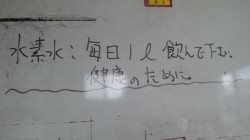 水素水：毎日1ℓ飲んで下む。
健康のために。